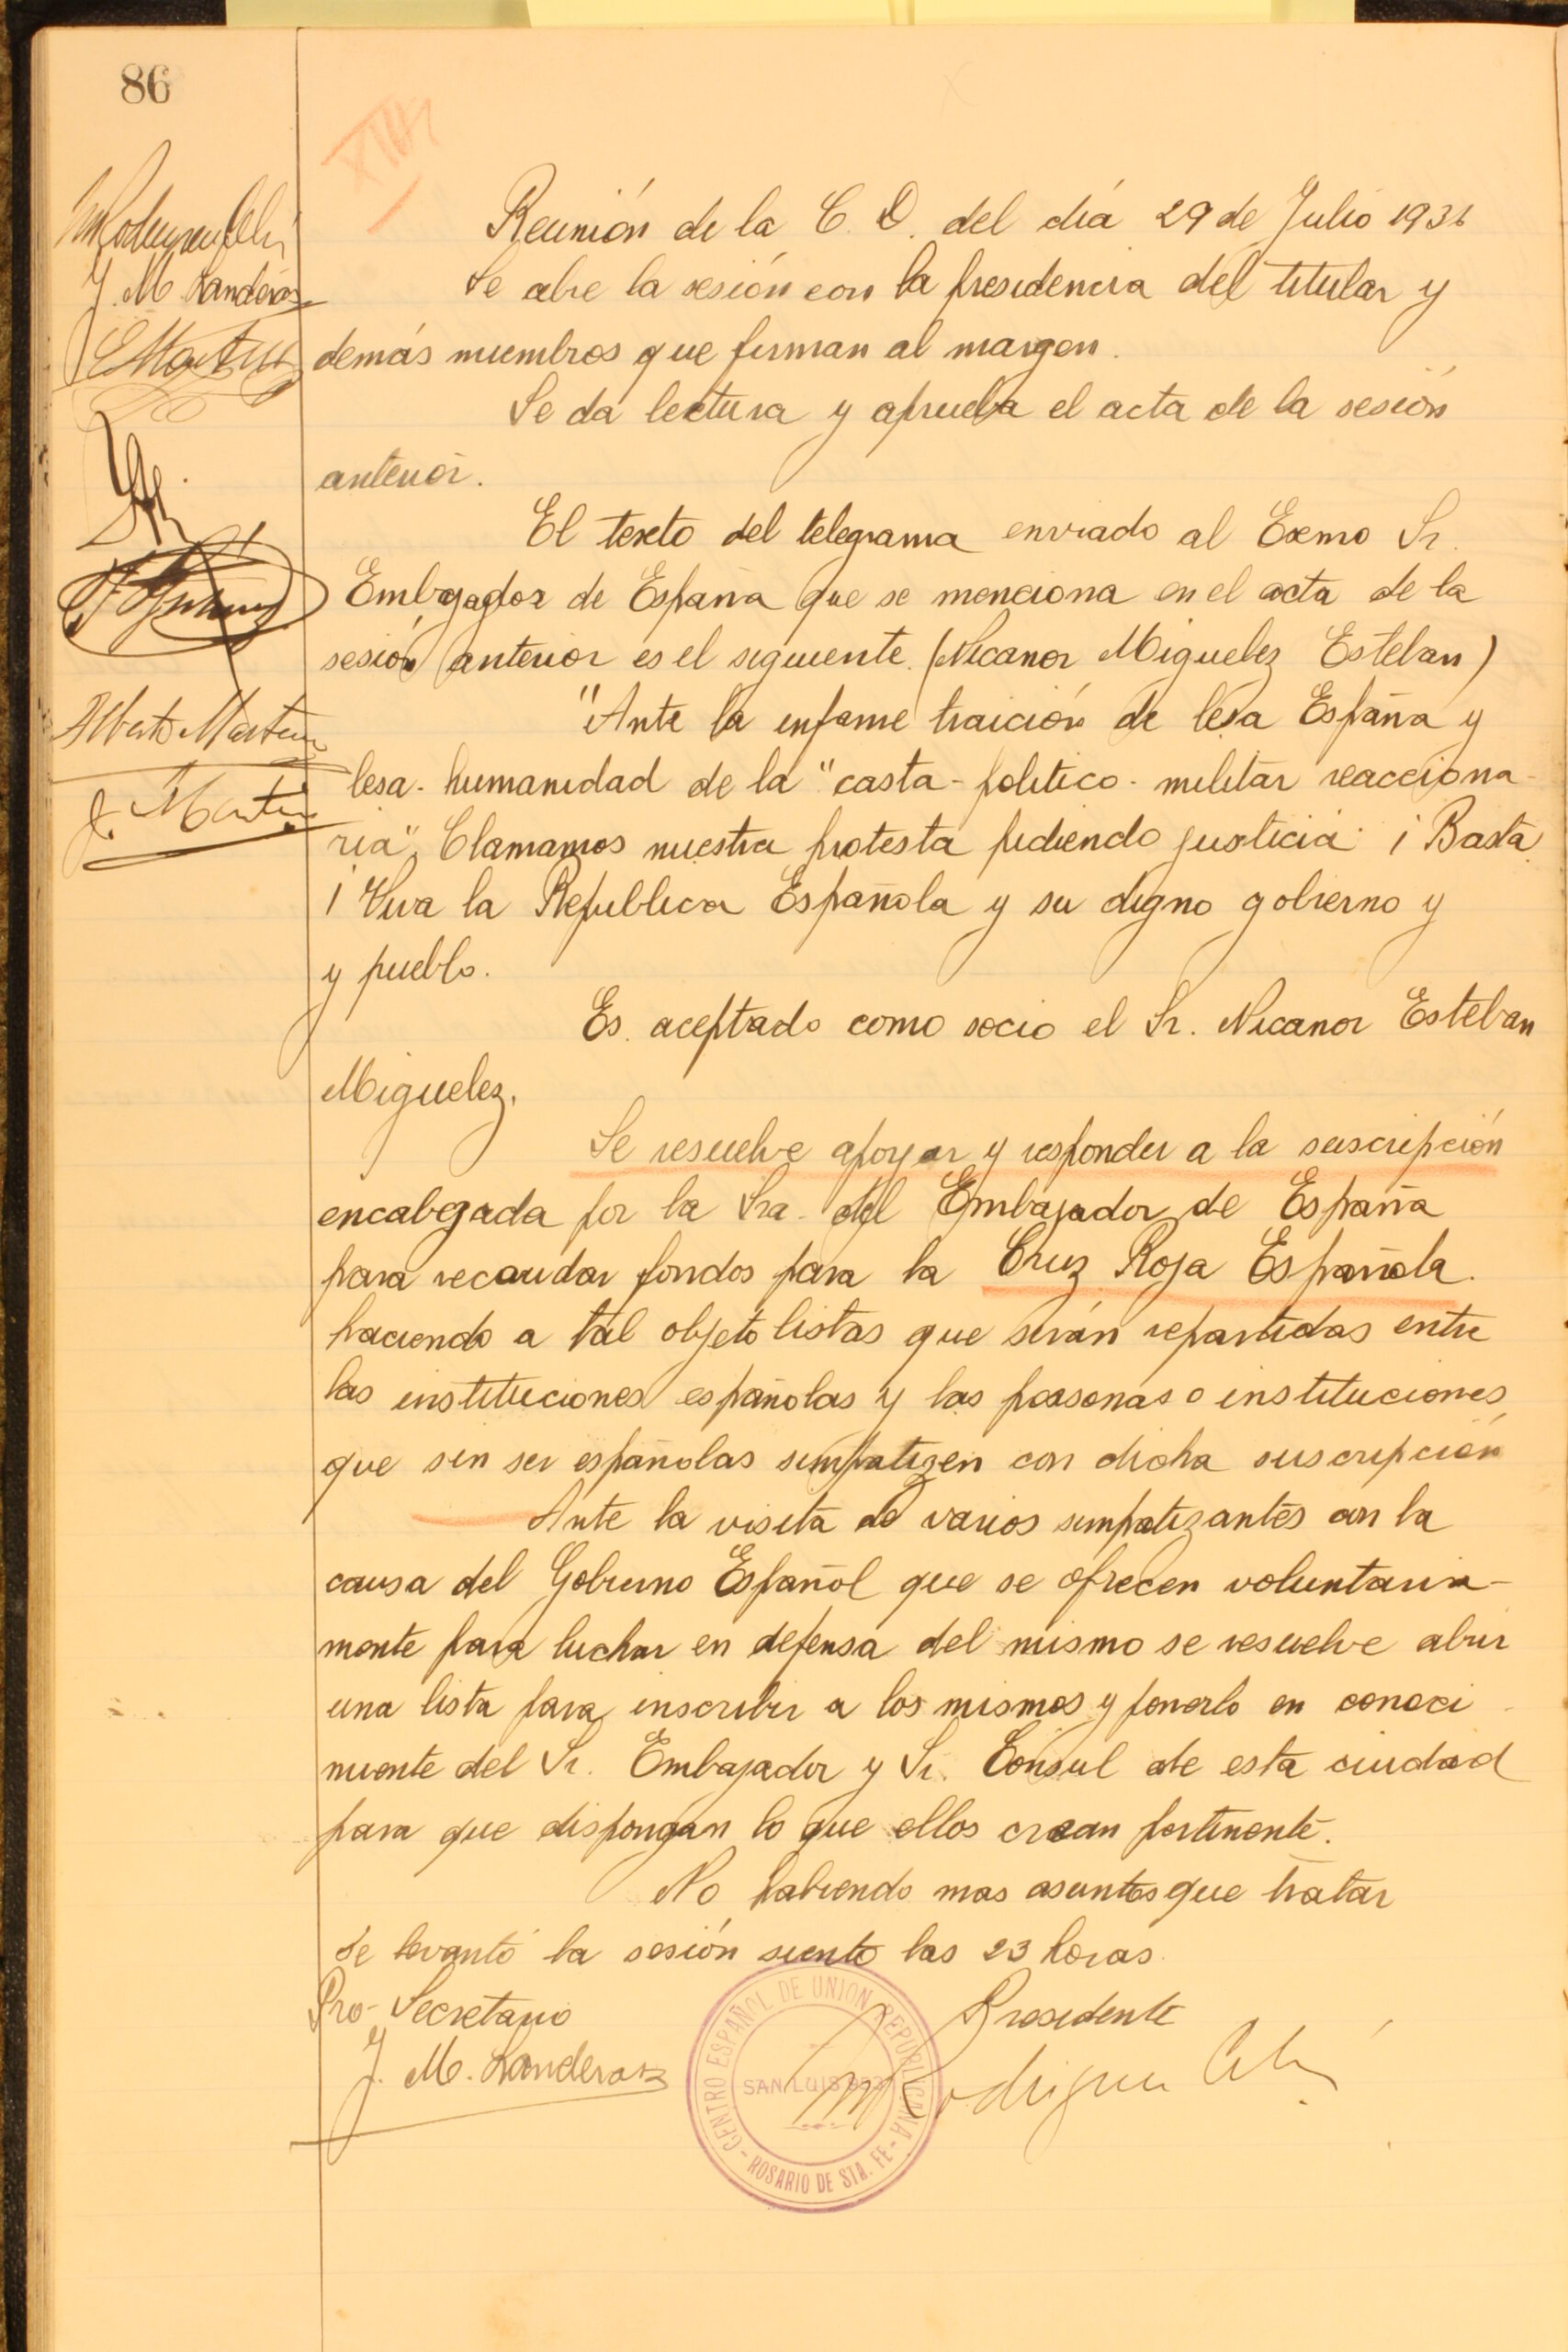 86
J. M. Landeras
Alberto Martin
J. Martin
Reunión de la C. D. del día 29 de Julio 1936
Se abre la sesión con la presidencia del titular y
demás miembros que firman al margen.
Se da lectura y aprueba el acta de la sesión
anterior.
El texto del telegrama enviado al Exmo Sr.
Embajador de España que se menciona en el acta de la
sesión anterior es el siguiente. (Nicanor Miguelez Esteban)
"Ante la infame traición de lesa España y
lesa-humanidad de la "casta-politico-militar reacciona-
ria", Clamamos nuestra protesta pidiendo justicia. ¡Basta
¡Viva la Republica Española y su digno gobierno y
y pueblo.
Es. aceptado como socio el Sr. Nicanor Esteban
Miguelez.
Se resuelve apoyar y responder a la suscripción
encabezada por la Sra. del Embajador de España
para recaudar fondos para la Cruz Roja Española.
haciendo a tal objeto listas que serán repartidas entre
las instituciones españolas y las personas o instituciones
que sin ser españolas simpatizen con dicha suscripción
Ante la visita de varios simpatizantes con la
causa del Gobierno Español que se ofrecen voluntaria-
mente para luchar en defensa del mismo se resuelve abrir
una lista para inscribir a los mismos y ponerlo en conoci
miente del Sr. Embajador y Sr. Consul de esta ciudad
para que dispongan lo que ellos crean pertinente.
No habiendo mas asuntos que tratar
se levantó la sesión siento las 23 horas.
Pro-Secretario Presidente
J. M. Landeras M Rodriguez
CENTRO ESPAÑOL DE UNION REPUBLICANA
SAN LUIS
ROSARIO DE STA. FE